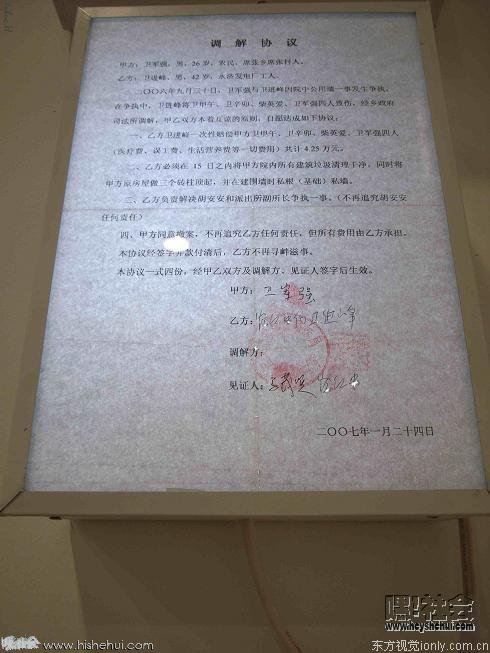 调 解 协 议
甲方：卫军强，男，26岁，农民，席张乡席张村人。
乙方：卫进峰，男，42岁，永济发电厂工人。
二〇〇六年九月三十日，卫军强与卫进峰因院中公用墙一事发生争执。
在争执中，卫进峰将卫甲午、卫辛卯、柴英爱、卫军强四人致伤，经乡政府
司法所调解，甲乙双方本着互谅的原则，自愿达成如下协议：
一、乙方卫进峰一次性赔偿甲方卫甲午、卫辛卯、柴英爱、卫军强四人
（医疗费、误工费、生活营养费等一切费用）共计 4.25 万元。
二、乙方必须在 15 日之内将甲方院内所有建筑垃圾清理干净，同时将
甲方原房屋做三个砖柱顶起，并在建围墙时私根（基础）私墙。
三、乙方负责解决胡安安和派出所副所长争执一事。（不再追究胡安安
任何责任）
四、甲方同意撤案，不再追究乙方任何责任，但所有费用由乙方承担。
本协议经签字并款付清后，乙方不再寻衅滋事。
本协议一式四份，经甲乙双方及调解方、见证人签字后生效。
甲方：卫军强
乙方：卫进峰
调解方：
见证人：
二〇〇七年一月二十四日
嘿社会
www.heyshehui.com
嘿社会 www.hishehui.com
东方视觉ionly.com.cn